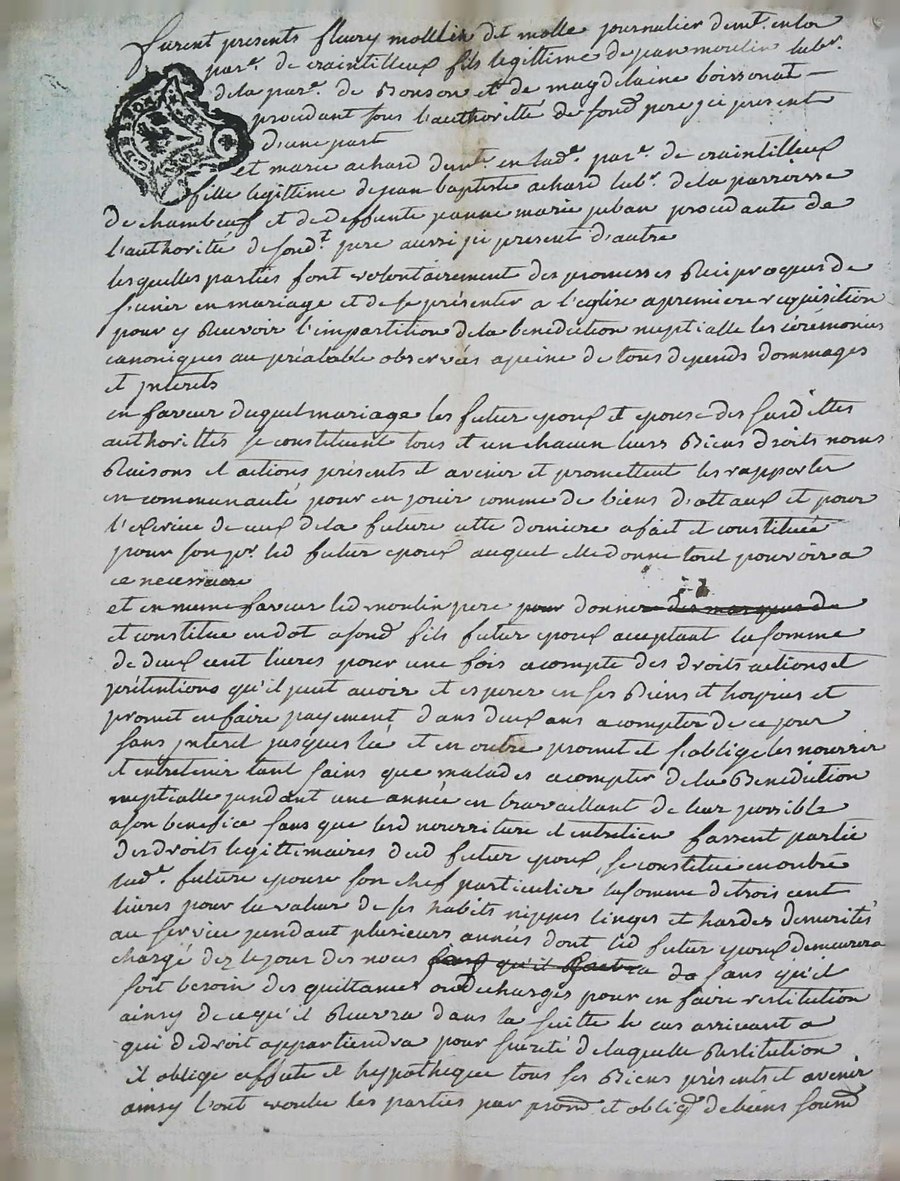 furent presents fleury mollin dit molle journalier demt. en la
parr. de craintilleux fils legittime de jean moulin labr.
de la parr. de Bonson et de magdelaine boissonat
procédant sous l'authorité de sond pere ici present
d'une part
et marie achard demte. en lade. parr. de craintilleux
fille legittime de jean baptiste achard labr. de la parroisse
de chambeuf et de deffunte jeanne marie juban procédante de
l'authorité de sondt. pere aussi ici present d'autre
lesquelles parties font volontairement des promesses Réciproques de
s'unir en mariage et de se présenter a l'eglise a premiere requisition
pour y Recevoir l'impartition de la benediction nuptialle les cérémonies
canoniques au préalable observées a peine de tous depends dommages
et jnterets
en faveur duquel mariage les futur epoux et epouse des susdittes
authorittés se constituent tous et un chacun leurs Biens droits noms
Raisons et actions présents et avenir et promettent les rapporter
en communauté pour en jouir comme de biens d'ottaux et pour
l'exercice de ceux de la future cette derniere a fait et constituée
pour son pr. led futur epoux auquel elle donne tout pouvoir a
ce necessaire
et en meme faveur led moulin pere pour donner des marques de
et constitue en dot a sond fils futur epoux aceptant la somme
de deux cent livres pour une fois acompte des droits actions et
prétentions qu'il peut avoir et esperer en ses Biens et hoyries et
promet en faire payement dans deux ans a compter de ce jour
sans jnteret jusques là et en outre promet et s'oblige les nourrir
et entretenir tant sains que malades a compter de la Benediction
nuptialle pendant une année en travaillant de leur possible
a son benefice sans que lesd nourriture et entretien fassent partie
des droits legittimaires dud futur epoux, se constitue en outre
lade. future epouse son chef particulier la somme de trois cent
livres pour la valeur de ses habits nippes linges et hardes demerités
au service pendant plusieurs années dont led futur epoux demeurera
chargé dez le jour des noces sans qu'il faudra de sans qu'il
soit besoin des quittances ou décharges pour en faire restitution
ainsy de ce qu'il Recevra dans la suitte le cas arrivant a
qui de droit appartiendra pour sureté de laquelle Restitution
il oblige affecte et hypothèque tous ses Biens présents et avenir
ainsy l'ont voulu les parties par prom et obliq de biens soum